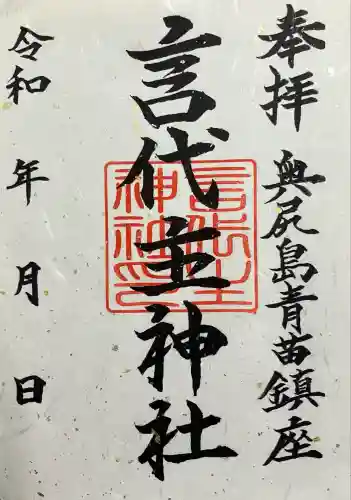 奉拝
奥尻島青苗鎮座
言代主神社
言代主神社印
令和 年 月 日